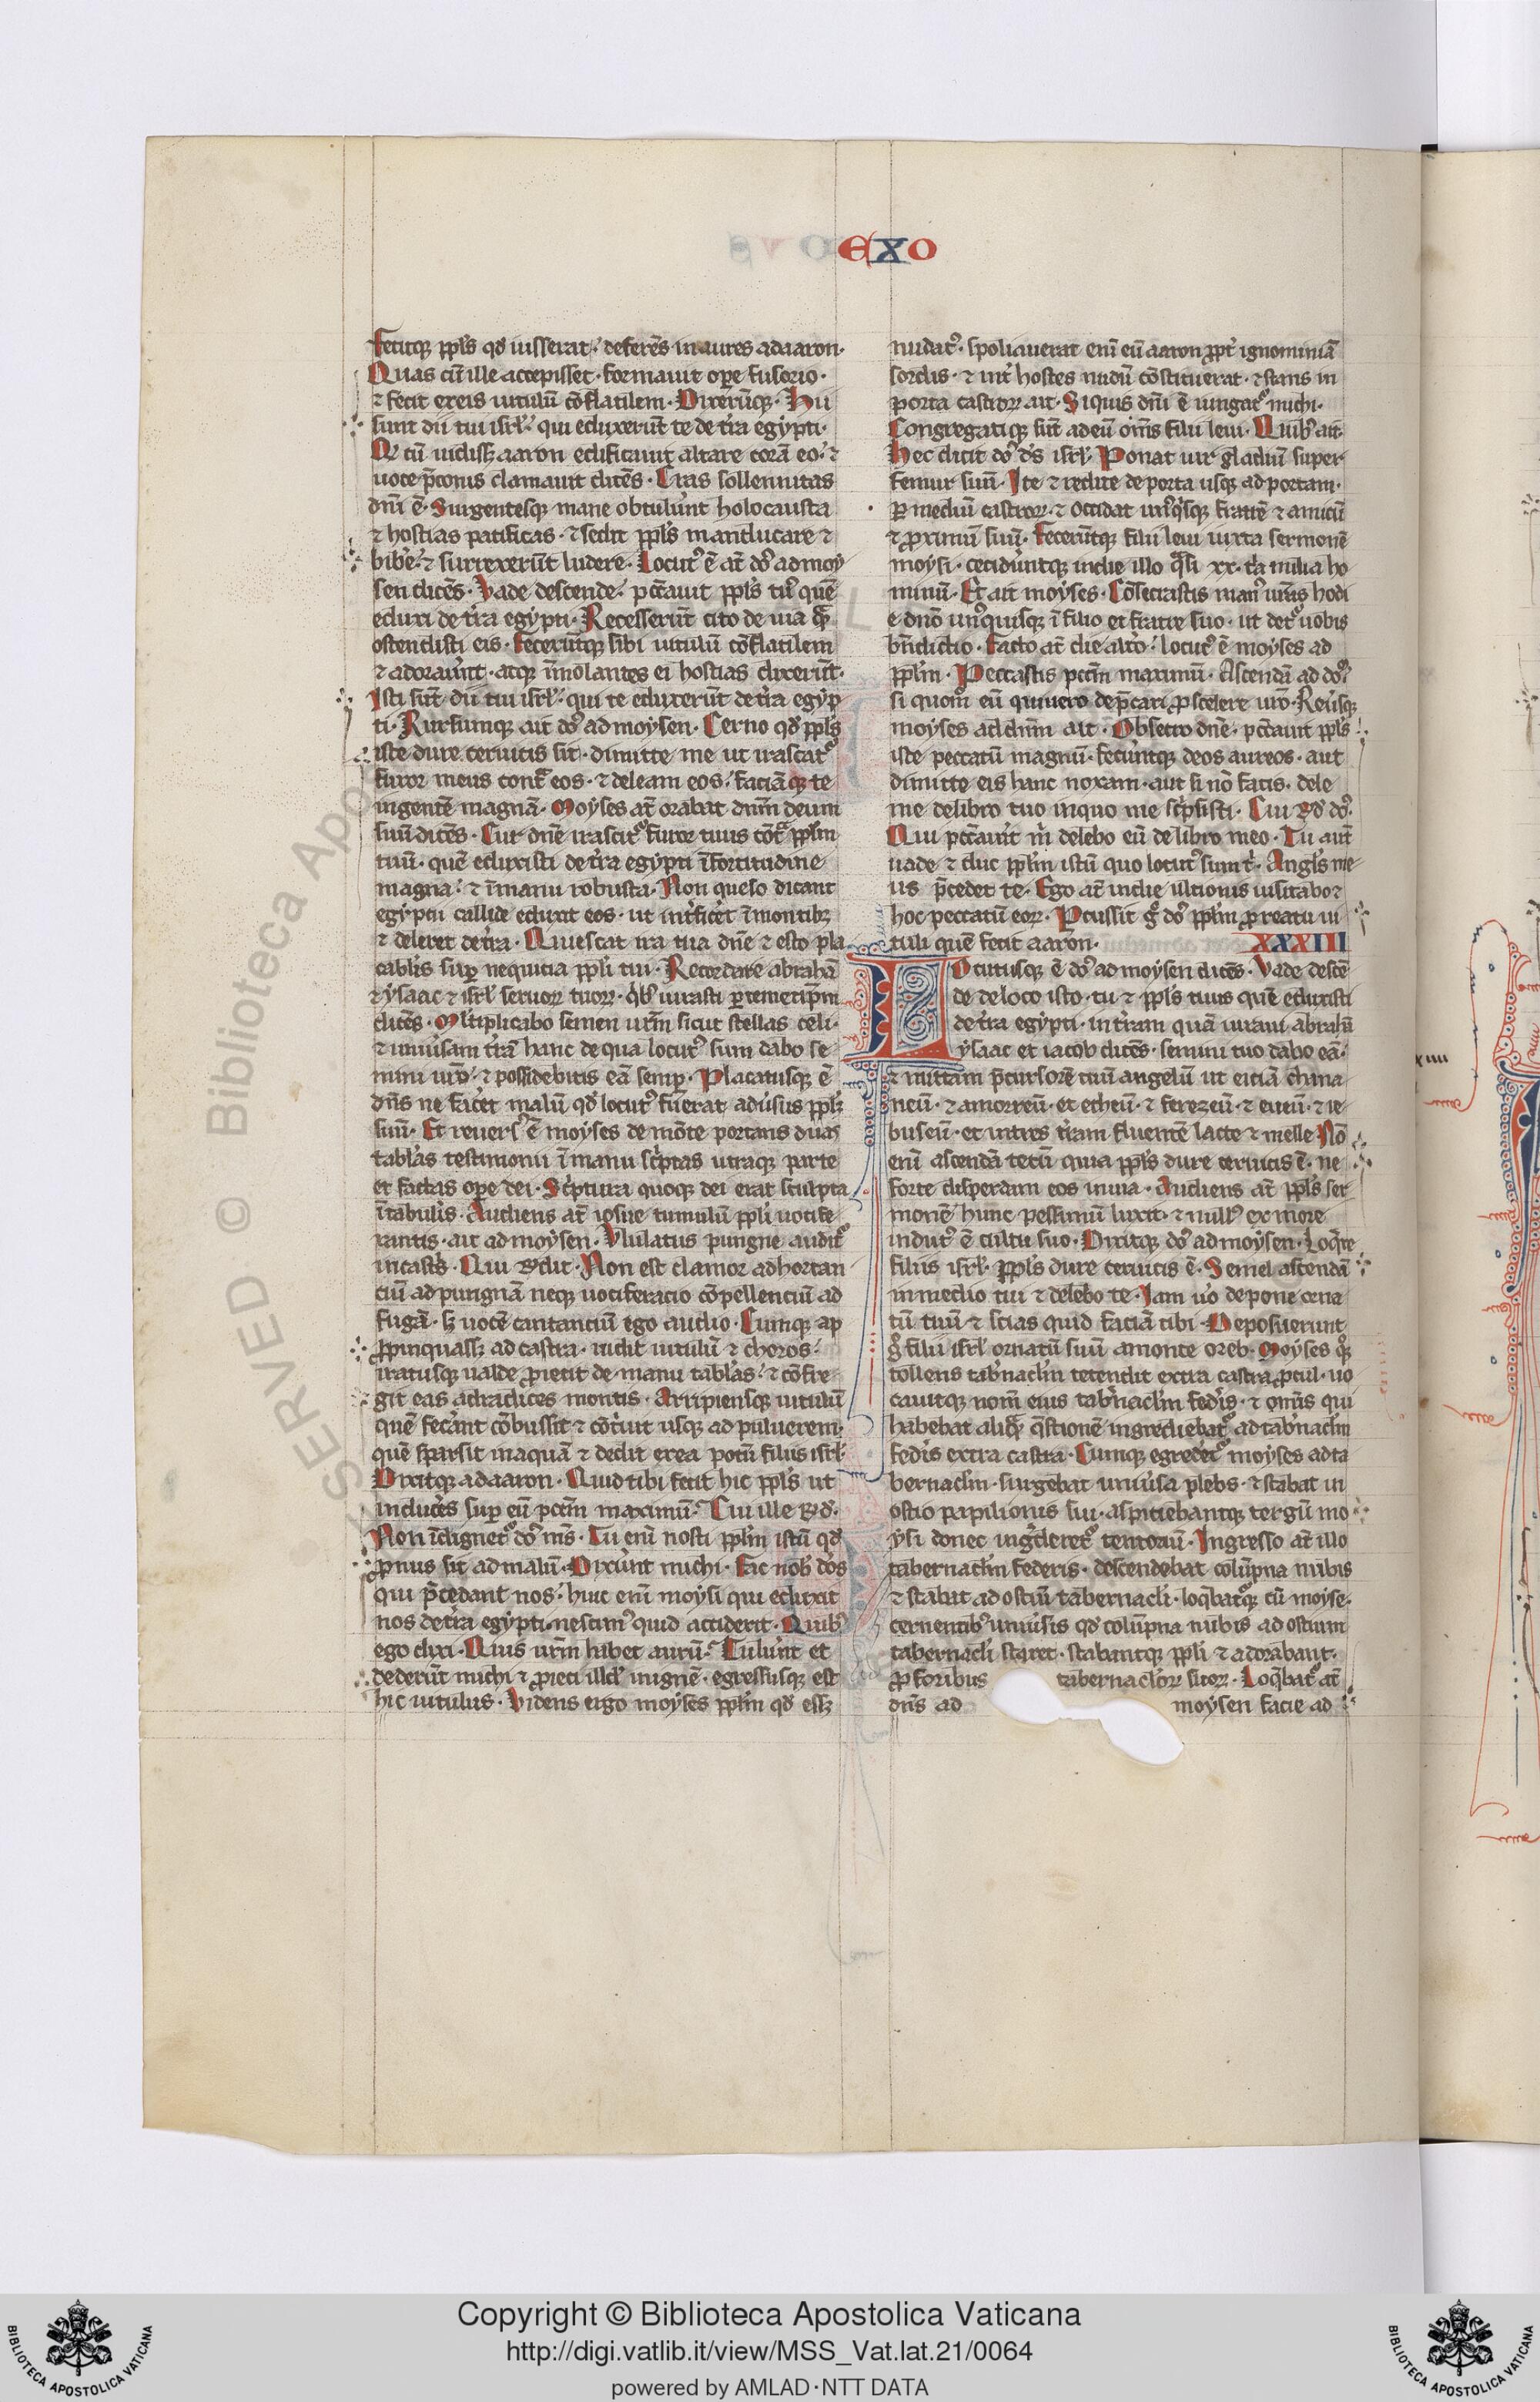 EXO
Fecitq̢ ppl's qd̛ iusserat.' deferēs inaures adaaron.
Quas cū ille accepisset. formauit oꝑe fusorio.
⁊ fecit exeis uitulū cōflatilem. Dixerūtq̢. Hii
sunt dii tui isrl'.' qui eduxerūt te de t'ra egypti.
Qd̛ cū uidissꝫ aaron edificauit altare corā eo.' ⁊
uoce p̄conis clamauit dicēs. Cras sollennitas
dn̄i ē. Surgentesq̢ mane obtulẜt holocausta
⁊ hostias pacificas. ⁊ sedit ppl's manducare ⁊
bibe'.' ⁊ surrexerūt ludere. Locut⁹ ē at̄ do⁹ admoy
sen dicēs. Vade descende.' pc̄cauit ppl's tu⁹ quē
eduxi de t'ra egypti. Recesserūt cito de uia quā
ostendisti eis. Fecerūtq̢ sibi uitulū cōflatilem
⁊ adorauẜt. atq̢ īmōlantes ei hostias dixerūt.
Isti sūt dii tui isrl'.' qui te eduxerūt de t'ra egyp
ti. Rursumq̢ ait do⁹ ad moysen. Cerno qd̛ ppl's
iste dure ceruicis sit. dimitte me ut irascat'
furor meus contͣ eos. ⁊ deleam eos.' faciāq̢ te
ingentē magnā. Moyses at̄ orabat dn̄m deum
suū dicēs. Cur dn̄e irascit' furor tuus cōtͣ pplm̄
tuū. quē eduxisti de t'ra egypti ī fortitudine
magna.' ⁊ ī manu robusta. Non queso dicant
egyptii callide eduxit eos. ut int'ficēt ī montibꝫ
⁊ deleret de t'ra. Quiescat ira tua dn̄e ⁊ esto pla
cabl'is suꝑ nequicia ppl'i tui. Recordare abrahā
⁊ ysaac ⁊ isrl' seruoꝝ tuoꝝ. qͥb⁹ iurasti ꝑ temetip̄m
dicēs. Ml'tiplicabo semen ur̄m sicut stellas celi.
⁊ uniu'sam t'rā hanc de qua locut⁹ sum dabo se
mini ur̄o.' ⁊ possidebitis eā semꝑ. Placatusq̢ ē
dn̄s ne facēt malū qd̛ locut⁹ fuerat adu'sus pplꝫ
suū. Et reuers⁹ ē moyses de mōte portans duas
tabl'as testimonii ī manu sc̛ptas utraq̢ parte
et factas oꝑe dei. Sc̛ptura quoq̢ dei erat sculpta
ī tabulis. Audiens at̄ iosue tumulū ppl'i uocife
rantis. ait ad moysen. Vlulatus pungne audit'
incastͥs. Qui rn̄dit. Non est clamor adhortan
ciū ad pungnā neq̢ uociferacio cōpellenciū ad
fugā. sꝫ uocē cantanciū ego audio. Cumq̢ ap
ꝓpinquassꝫ ad castra. uidit uitulū ⁊ choros.'
iratusq̢ ualde ꝓiecit de manu tabl'as.' ⁊ cōfre
git eas adradices montis. Arripiensq̢ uitulū
quē fecẜant cōbussit ⁊ cōtͥuit usq̢ ad puluerem.
quē sparsit inaquā ⁊ dedit exea potū filiis isrl'.
Dixitq̢ adaaron. Quid tibi fecit hic ppl's ut
induc'es suꝑ eū pcc̄m maximū. Cui ille rn̄d.
Non īdignet' do⁹ m̄s. Tu eni nosti pplm̄ istū qd̛
ꝓnus sit ad malū. Dixẜunt michi. Fac nob' dos
qui p̄cedant nos.' huic eni moysi qui eduxit
nos de t'ra egypti. nescim⁹ quid acciderit. Quib⁹
ego dixi. Quis ur̄m habet aurū. Tulẜunt et
dederūt michi ⁊ ꝓieci illd' inignē. egressusq̢ est
hic uitulus. Videns ergo moyses pplm̄ qd̛ essꝫ
nudat⁹. spoliauerat eni eū aaron ꝓpt' ignominiā
sordis. ⁊ int' hostes nudū cōstituerat. ⁊ stans in
porta castroꝝ ait. Siquis dn̄i ē iungat' michi.
Congregatiq̢ sūt ad eū om̄s filii leui. Quib⁹ ait.
Hec dicit do⁹ ds̄ isrl'. Ponat uir gladiū super
femur suū. Ite ⁊ redite de porta usq̢ ad portam.
ꝑ mediū castroꝝ. ⁊ occidat un⁹qͥsq̢ fratrē ⁊ amicū
⁊ ꝓximū suū. Fecerūtq̢ filii leui iuxta sermonē
moysi. cecidẜuntq̢ indie illo qͣsi xx. tͥa milia ho
minū. Et ait moyses. Cōsecrastis man⁹ ur̄as hodi
e dn̄o un⁹quisq̢ ī filio et fratre suo. ut det' uobis
bn̄dictio. Facto at̄ die alt'o.' locut⁹ ē moyses ad
pplm̄. Peccastis pcc̄m maximū. Ascendā ad do⁹.'
si quom̄ eū quiuero dep̄cari ꝓ scelere ur̄o. Reu'susq̢
moyses ad dn̄m ait. Obsecro dn̄e. pc̄cauit ppl's
iste peccatū magnū. fecẜuntq̢ deos aureos. aut
dimitte eis hanc noxam. aut si nō facis. dele
me delibro tuo inquo me sc̛psisti. Cui rn̄d do⁹.
Qui pc̄cauit m̄ delebo eū de libro meo. Tu aut̄
uade ⁊ duc pplm̄ istū quo locut⁹ sum t'. Angl's me
us p̄cedet te. Ego at̄ indie ultionis uisitabo ⁊
hoc peccatū eoꝝ. Percussit g° do⁹ pplm̄ ꝓ reatu ui
tuli quē fecit aaron. XXXIII
Locutusq̢ ē do⁹ ad moysen dicēs. Vade descē
de deloco isto. tu ⁊ ppl's tuus quē eduxisti
de t'ra egypti. in t'ram quā iuraui abrahā
ysaac et iacob dicēs. semini tuo dabo eā.'
⁊ mittam p̄cursorē tuū angelū ut eiciā chana
neū. ⁊ amorreū. et etheū. ⁊ ferezeū. ⁊ eueū. ⁊ ie
buseū. et intres t'ram fluentē lacte ⁊ melle Nō
eni ascendā tecū quia ppl's dure ceruicis ē. ne
forte disperdam eos inuia. Audiens at̄ ppl's ser
monē hunc pessimū luxit. ⁊ null⁹ ex more
indut⁹ ē cultu suo. Dixitq̢ do⁹ ad moysen. Loqͥre
filiis isrl'. ppl's dure ceruicis ē. Semel ascendā
inmedio tui ⁊ delebo te. Iam u'o depone orna
tū tuū ⁊ scias quid faciā tibi. Deposuerunt
g° filii isrl' ornatū suū amonte oreb. Moyses qͦq̢
tollens tab'nacl'm tetendit extra castra ꝓcul. uo
cauitq̢ nom̄ eius tab'nacl'm fed'is. ⁊ om̄is qui
habebat aliqͣ qͣstionē ingrediebat' ad tab'nacl'm
fed'is extra castra. Cumq̢ egredet' moyses ad ta
bernacl'm. surgebat uniu'sa plebs. ⁊ stabat in
ostio papilionis sui. aspiciebantq̢ tergū mo
ysi donec ingͣderet' tentoriū. Ingresso at̄ illo
tabernacl'm federis. descendebat colūpna nubis
⁊ stabat ad ostiū tabernacl'i. loqͥbat'q̢ cū moyse.
cernentib⁹ uniu'sis qd̛ colūpna nubis ad ostium
tabernacl'i staret. stabantq̢ ppl'i ⁊ adorabant.
ꝓ foribus tabernacl'oꝝ suoꝝ. Loqͥbat' at̄
dn̄s ad moysen facie ad
Copyright © Biblioteca Apostolica Vaticana
http://digi.vatlib.it/view/MSS_Vat.lat.21/0064
powered by AMLAD·NTT DATA
BIBLIOTECA APOSTOLICA VATICANA
BIBLIOTECA APOSTOLICA VATICANA